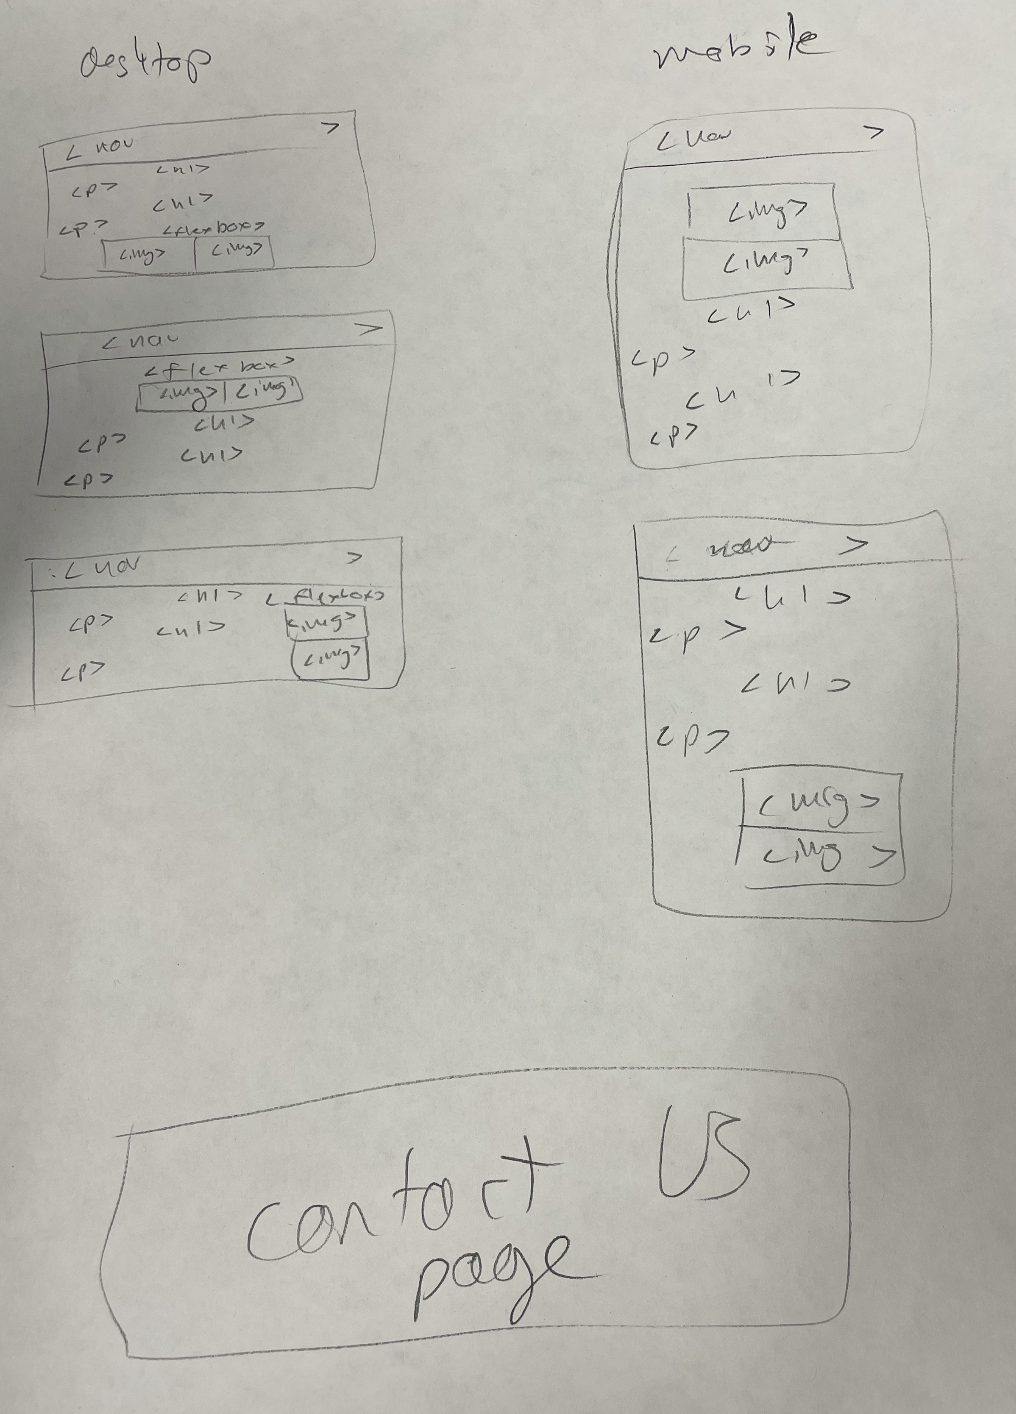 desktop
< nav >
<h1>
<p>
<h1>
<p>
<flexbox>
<img> <img>
< nav >
<flex box>
<img> <img>
<h1>
<p>
<h1>
<p>
< nav >
<h1> < flexbox>
<p> <img>
<h1>
<p> <img>
mobile
< nav >
<img>
<img>
<h1>
<p>
<h1>
<p>
< nav >
<h1>
<p>
<h1>
<p>
<img>
<img>
contact us
page